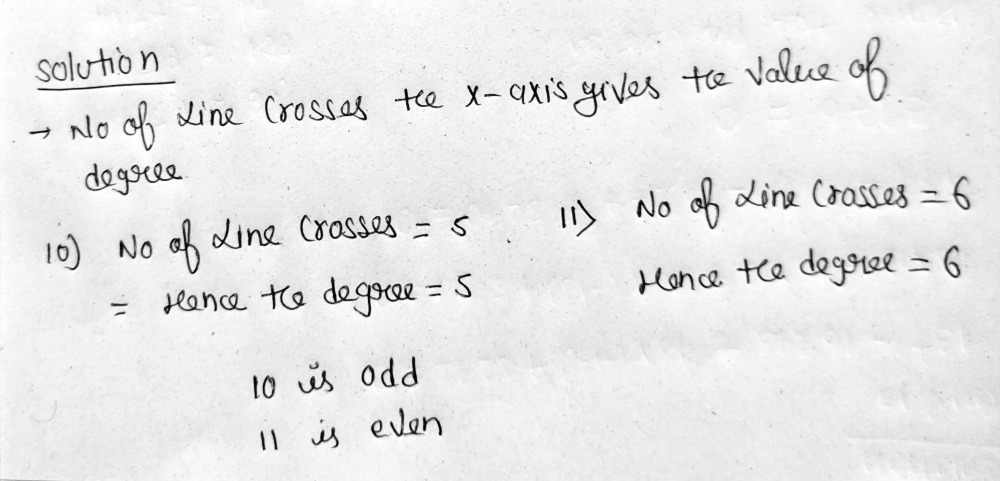 solution
→ No of Line Crosses the x-axis gives the Value of
degree
10) No of Line Crosses = 5
= Hence the degree = 5
11) No of Line Crosses = 6
Hence the degree = 6
10 is odd
11 is even